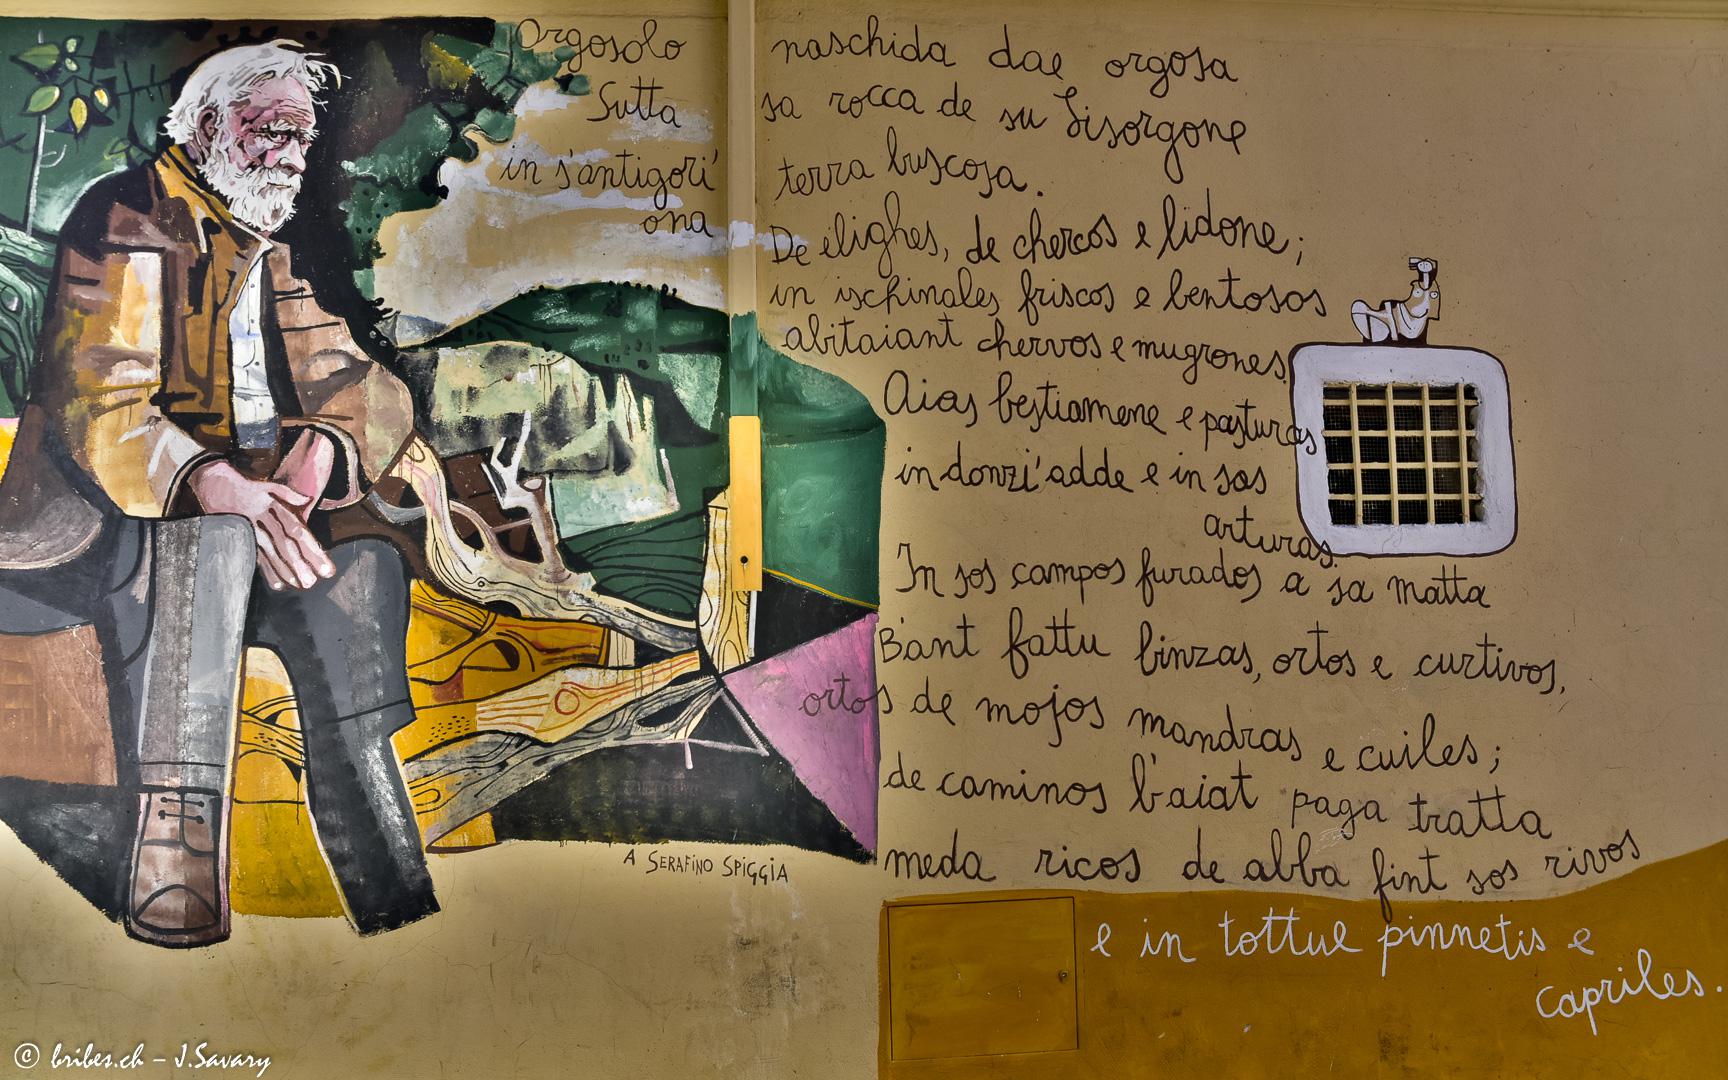 Orgosolo naschida dae orgosa
Sutta sa rocca de su Lisorgone
in s'antigori' terra buscosa.
ona
De elighes, de chercos e lidone;
in ischinales friscos e bentosos
abitaiant chervos e mugrones.
Aias bestiamene e pasturas
in donzi'adde e in sas
arturas.
In sos campos furados a sa matta
B'ant fattu binzas, ortos e curtivos,
ortos de mojos mandras e cuiles;
de caminos b'aiat paga tratta
meda ricos de abba fint sos rivos
e in tottue pinnetis e
capriles.
A SERAFINO SPIGGIA
© bribes.ch - J.Savary